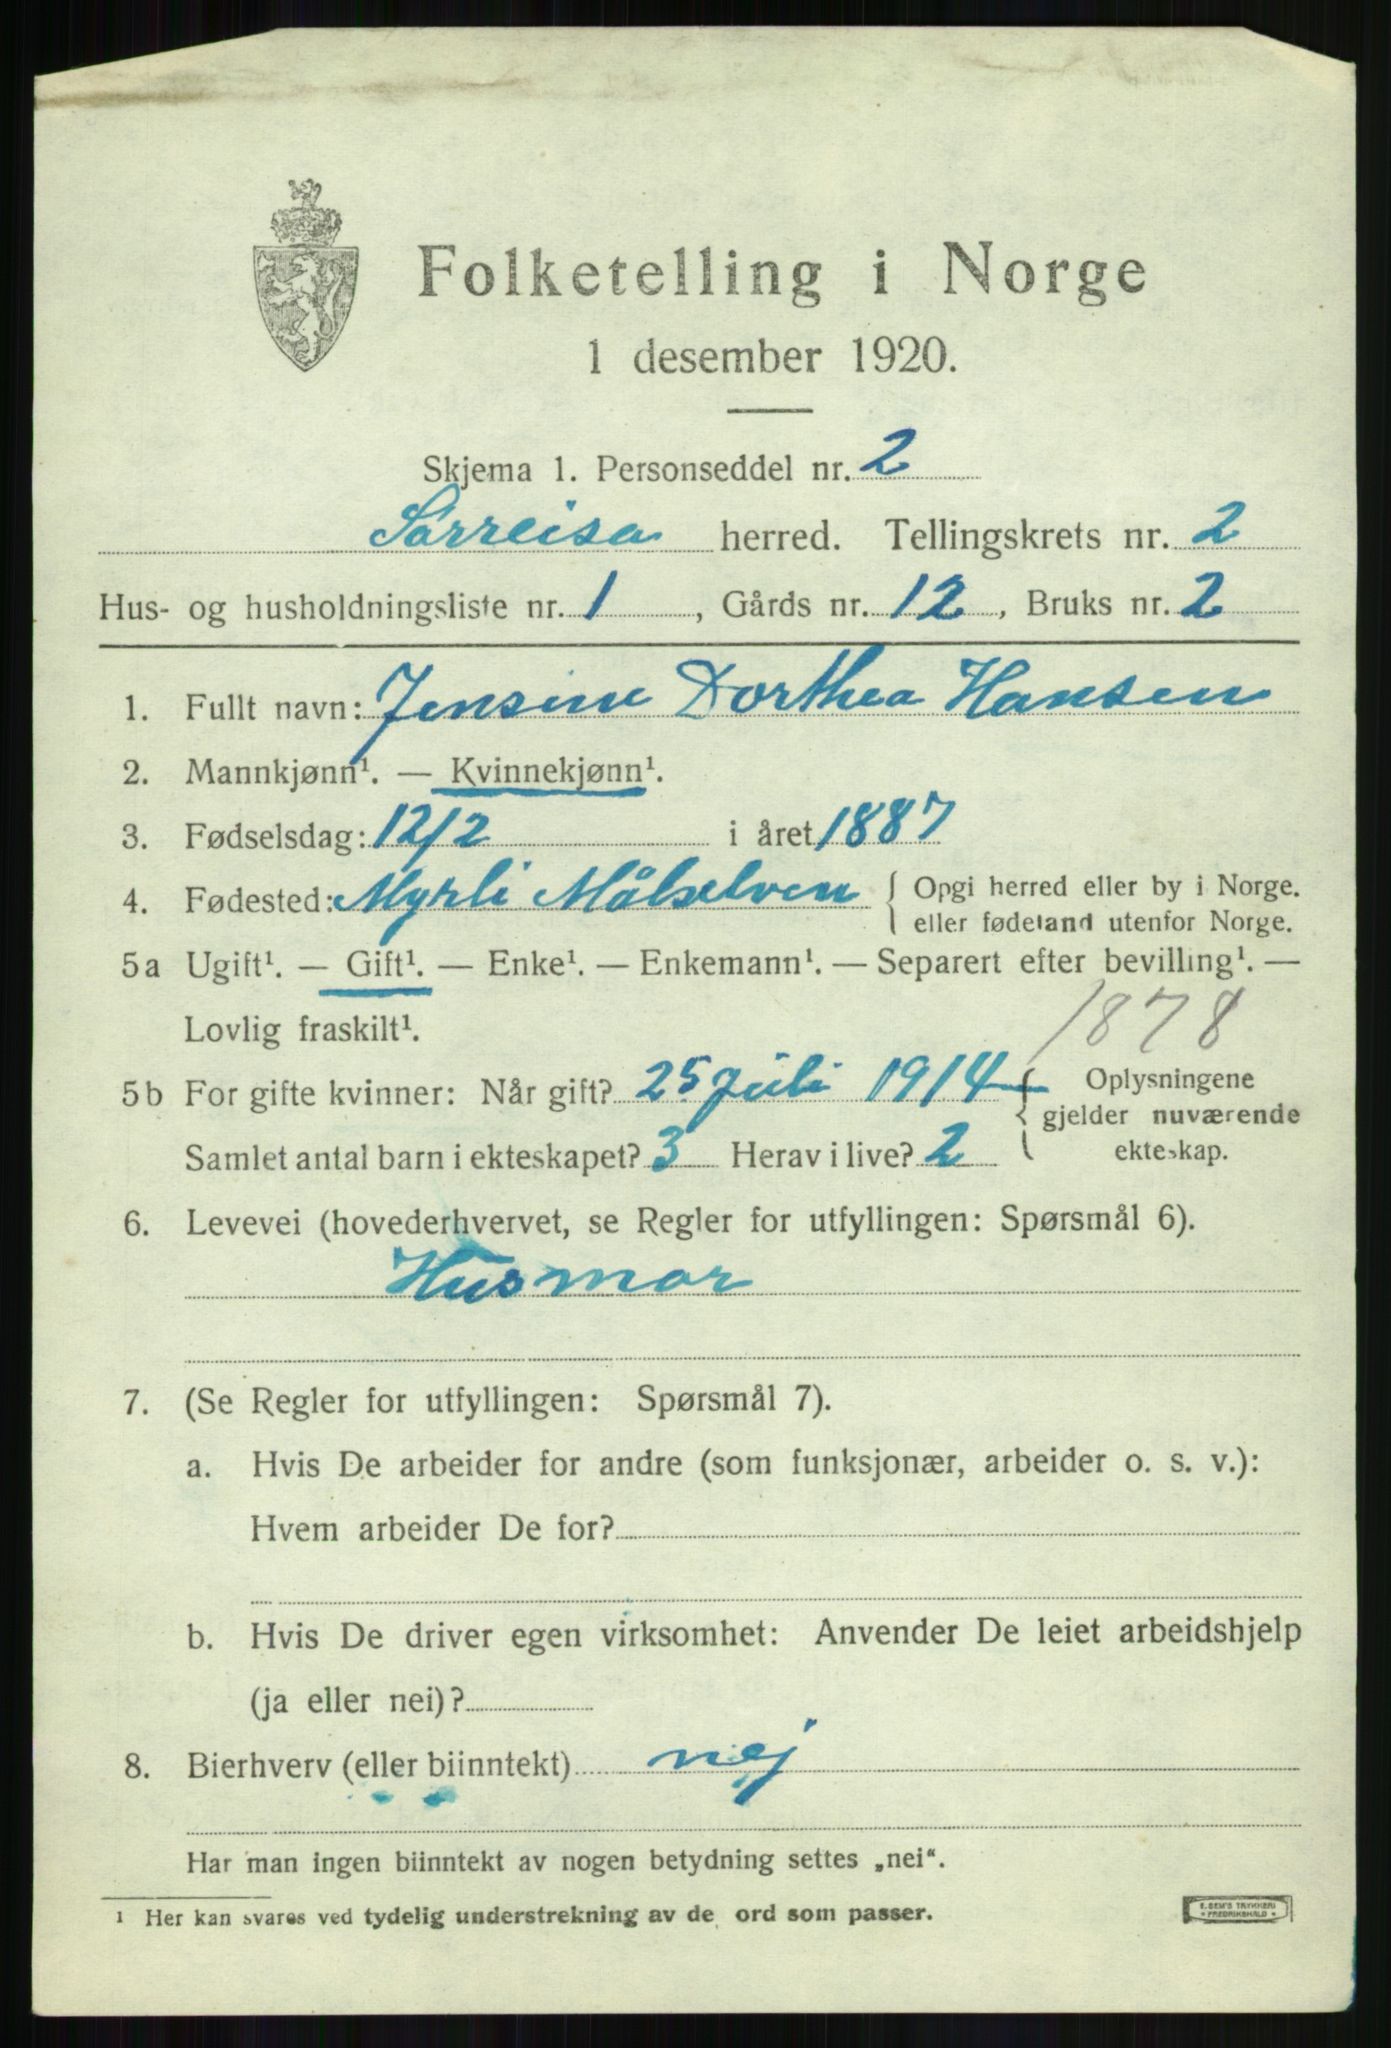 Folketelling i Norge
1 desember 1920.
Skjema 1. Personseddel nr. 2
Sørreisa herred. Tellingskrets nr. 2
Hus- og husholdningsliste nr. 1, Gårds nr. 12, Bruks nr. 2
1. Fullt navn: Jensine Dorthea Hansen
2. Mannkjønn¹. — Kvinnekjønn¹.
3. Fødselsdag: 12/2 i året 1887
4. Fødested: Myrli Målselven { Opgi herred eller by i Norge.
eller fødeland utenfor Norge.
5a Ugift¹. — Gift¹. — Enke¹. — Enkemann¹. — Separert efter bevilling¹. —
Lovlig fraskilt¹. 1878
5b For gifte kvinner: Når gift? 25 Juli 1914 { Oplysningene
gjelder nuværende
Samlet antal barn i ekteskapet? 3 Herav i live? 2 ekteskap.
6. Levevei (hovederhvervet, se Regler for utfyllingen: Spørsmål 6).
Husmor
7. (Se Regler for utfyllingen: Spørsmål 7).
a. Hvis De arbeider for andre (som funksjonær, arbeider o. s. v.):
Hvem arbeider De for?
b. Hvis De driver egen virksomhet: Anvender De leiet arbeidshjelp
(ja eller nei)?
8. Bierhverv (eller biinntekt) nej
Har man ingen biinntekt av nogen betydning settes „nei“.
¹ Her kan svares ved tydelig understrekning av de ord som passer.
E. SEM'S TRYKKERI
* FREDRIKSHALD *